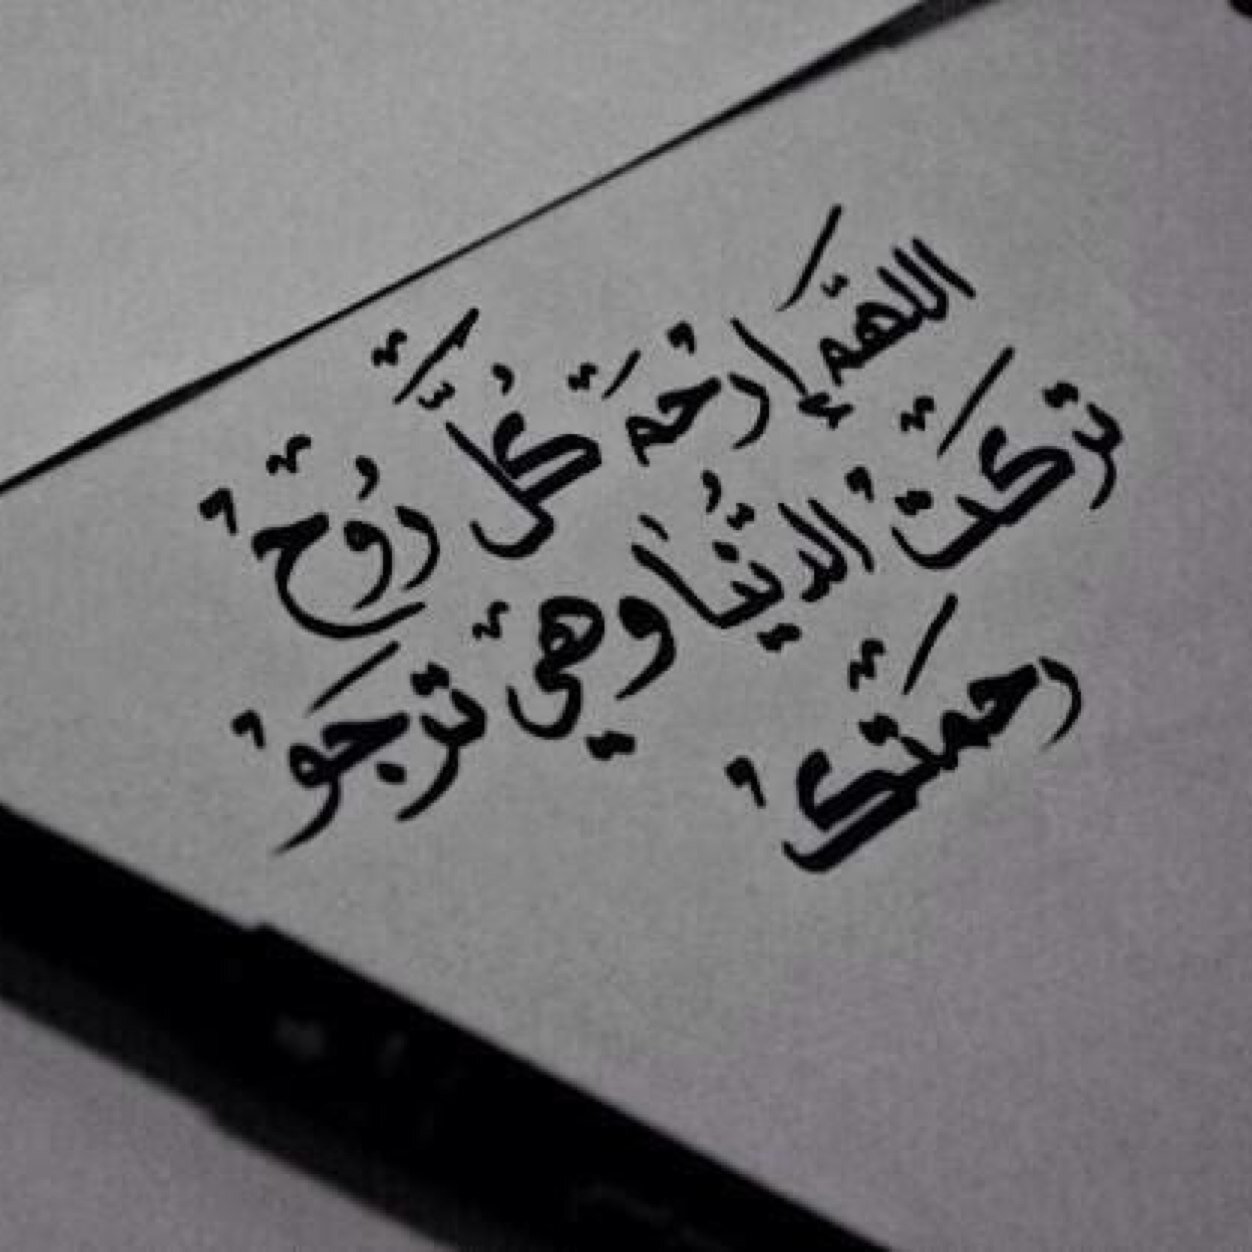 اللهمَّ إرحم كُلَّ رُوح
تركت الدُنيا وهي ترجو
رحمتك